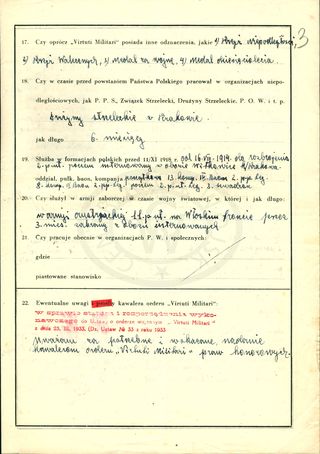 3
17. Czy oprócz „Virtuti Militari" posiada inne odznaczenia, jakie 1/ Krzyż niepodległości,
2/ Krzyż Walecznych, 3/ medal za wojnę, 4/ medal dziesięciolecia.
18. Czy w czasie przed powstaniem Państwa Polskiego pracował w organizacjach niepo-
dległościowych, jak P. P. S., Związek Strzelecki, Drużyny Strzeleckie, P. O. W. i t. p.
Drużyny strzeleckie w Krakowie.
jak długo 6. miesięcy
19. Służba w formacjach polskich przed 11/XI 1918 r. od 16. 1914. do rozbrojenia
2. p. uł. potem internowany w obozie Witkowice k/Krakowa
oddział, pułk, baon, kompanja początkowo 13. komp. IV. baon 2. pp. leg.
8. komp. baon 2. pp. leg. potem 2. p. uł. leg. 3. szwadron
20. Czy służył w armji zaborczej w czasie wojny światowej, w której i jak długo:
w armji austrjackiej p. uł. na Włoskim froncie przez
3. mies. zabrany z obozu internowanych
21. Czy pracuje obecnie w organizacjach P. W. i społecznych:
gdzie
piastowane stanowisko
22. Ewentualne uwagi i prośby kawalera orderu „Virtuti Militari":
w sprawie statutu i rozporządzenia wyko-
nawczego do Ustaw. o orderze wojennym „Virtuti Militari"
z dnia 23. III. 1933. (Dz. Ustaw № 33 z roku 1933
Uważam za potrzebne i wskazane, nadanie
kawalerom orderu „Virtuti Militari" praw honorowych.